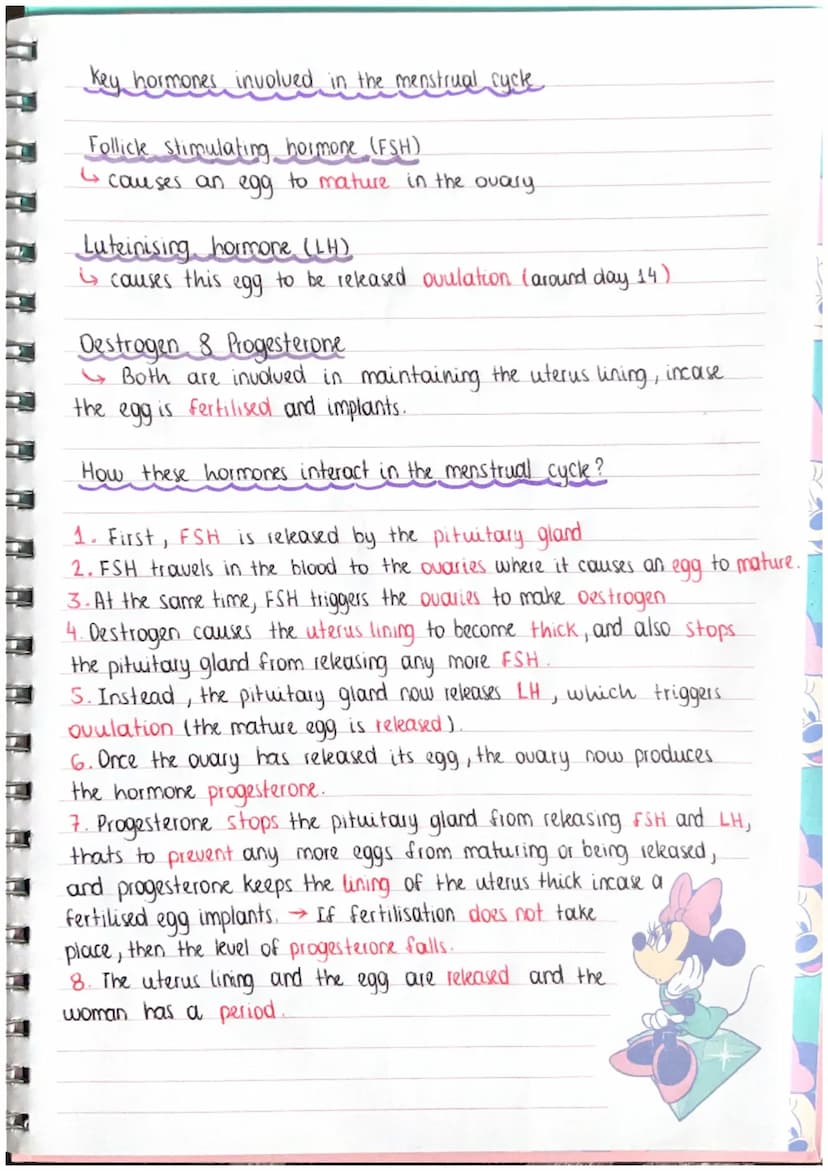 Key hormones involved in the menstrual cycle
Follicle stimulating hormone (FSH)
↳ causes an egg to mature in the ovary
Luteinising hormone (LH)
↳ causes this egg to be released ovulation (around day 14)
Oestrogen & Progesterone
↳ Both are involved in maintaining the uterus lining, incase
the egg is fertilised and implants.
How these hormones interact in the menstrual cycle?
1. First, FSH is released by the pituitary gland
2. FSH travels in the blood to the ovaries where it causes an egg to mature.
3. At the same time, FSH triggers the ovaries to make oestrogen
4. Oestrogen causes the uterus lining to become thick, and also stops
the pituitary gland from releasing any more FSH.
5. Instead, the pituitary gland now releases LH, which triggers
ovulation (the mature egg is released).
6. Once the ovary has released its egg, the ovary now produces
the hormone progesterone.
7. Progesterone stops the pituitary gland from releasing FSH and LH,
thats to prevent any more eggs from maturing or being released,
and progesterone keeps the lining of the uterus thick incase a
fertilised egg implants. → If fertilisation does not take
place, then the level of progesterone falls.
8. The uterus lining and the egg are released and the
woman has a period.